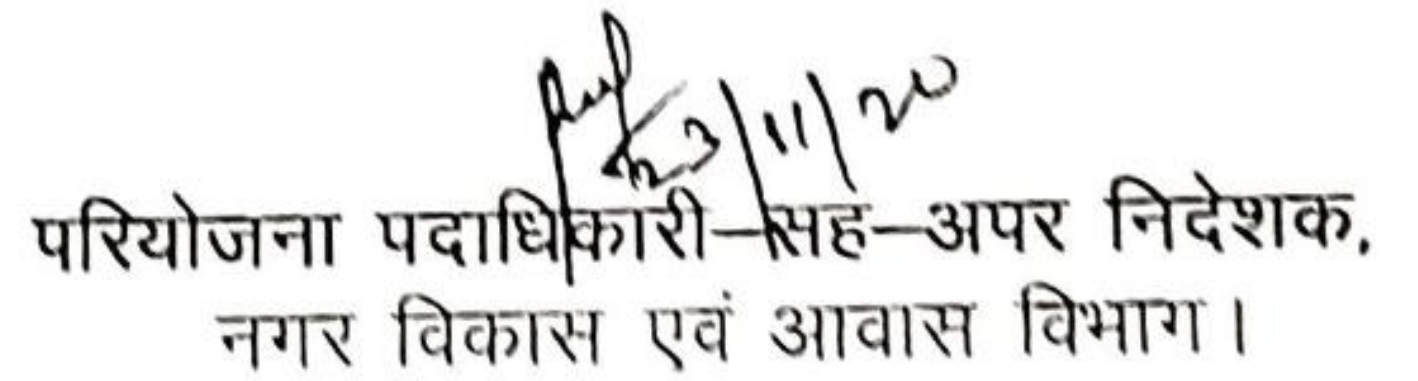 23/11/20
परियोजना पदाधिकारी-सह-अपर निदेशक,
नगर विकास एवं आवास विभाग।